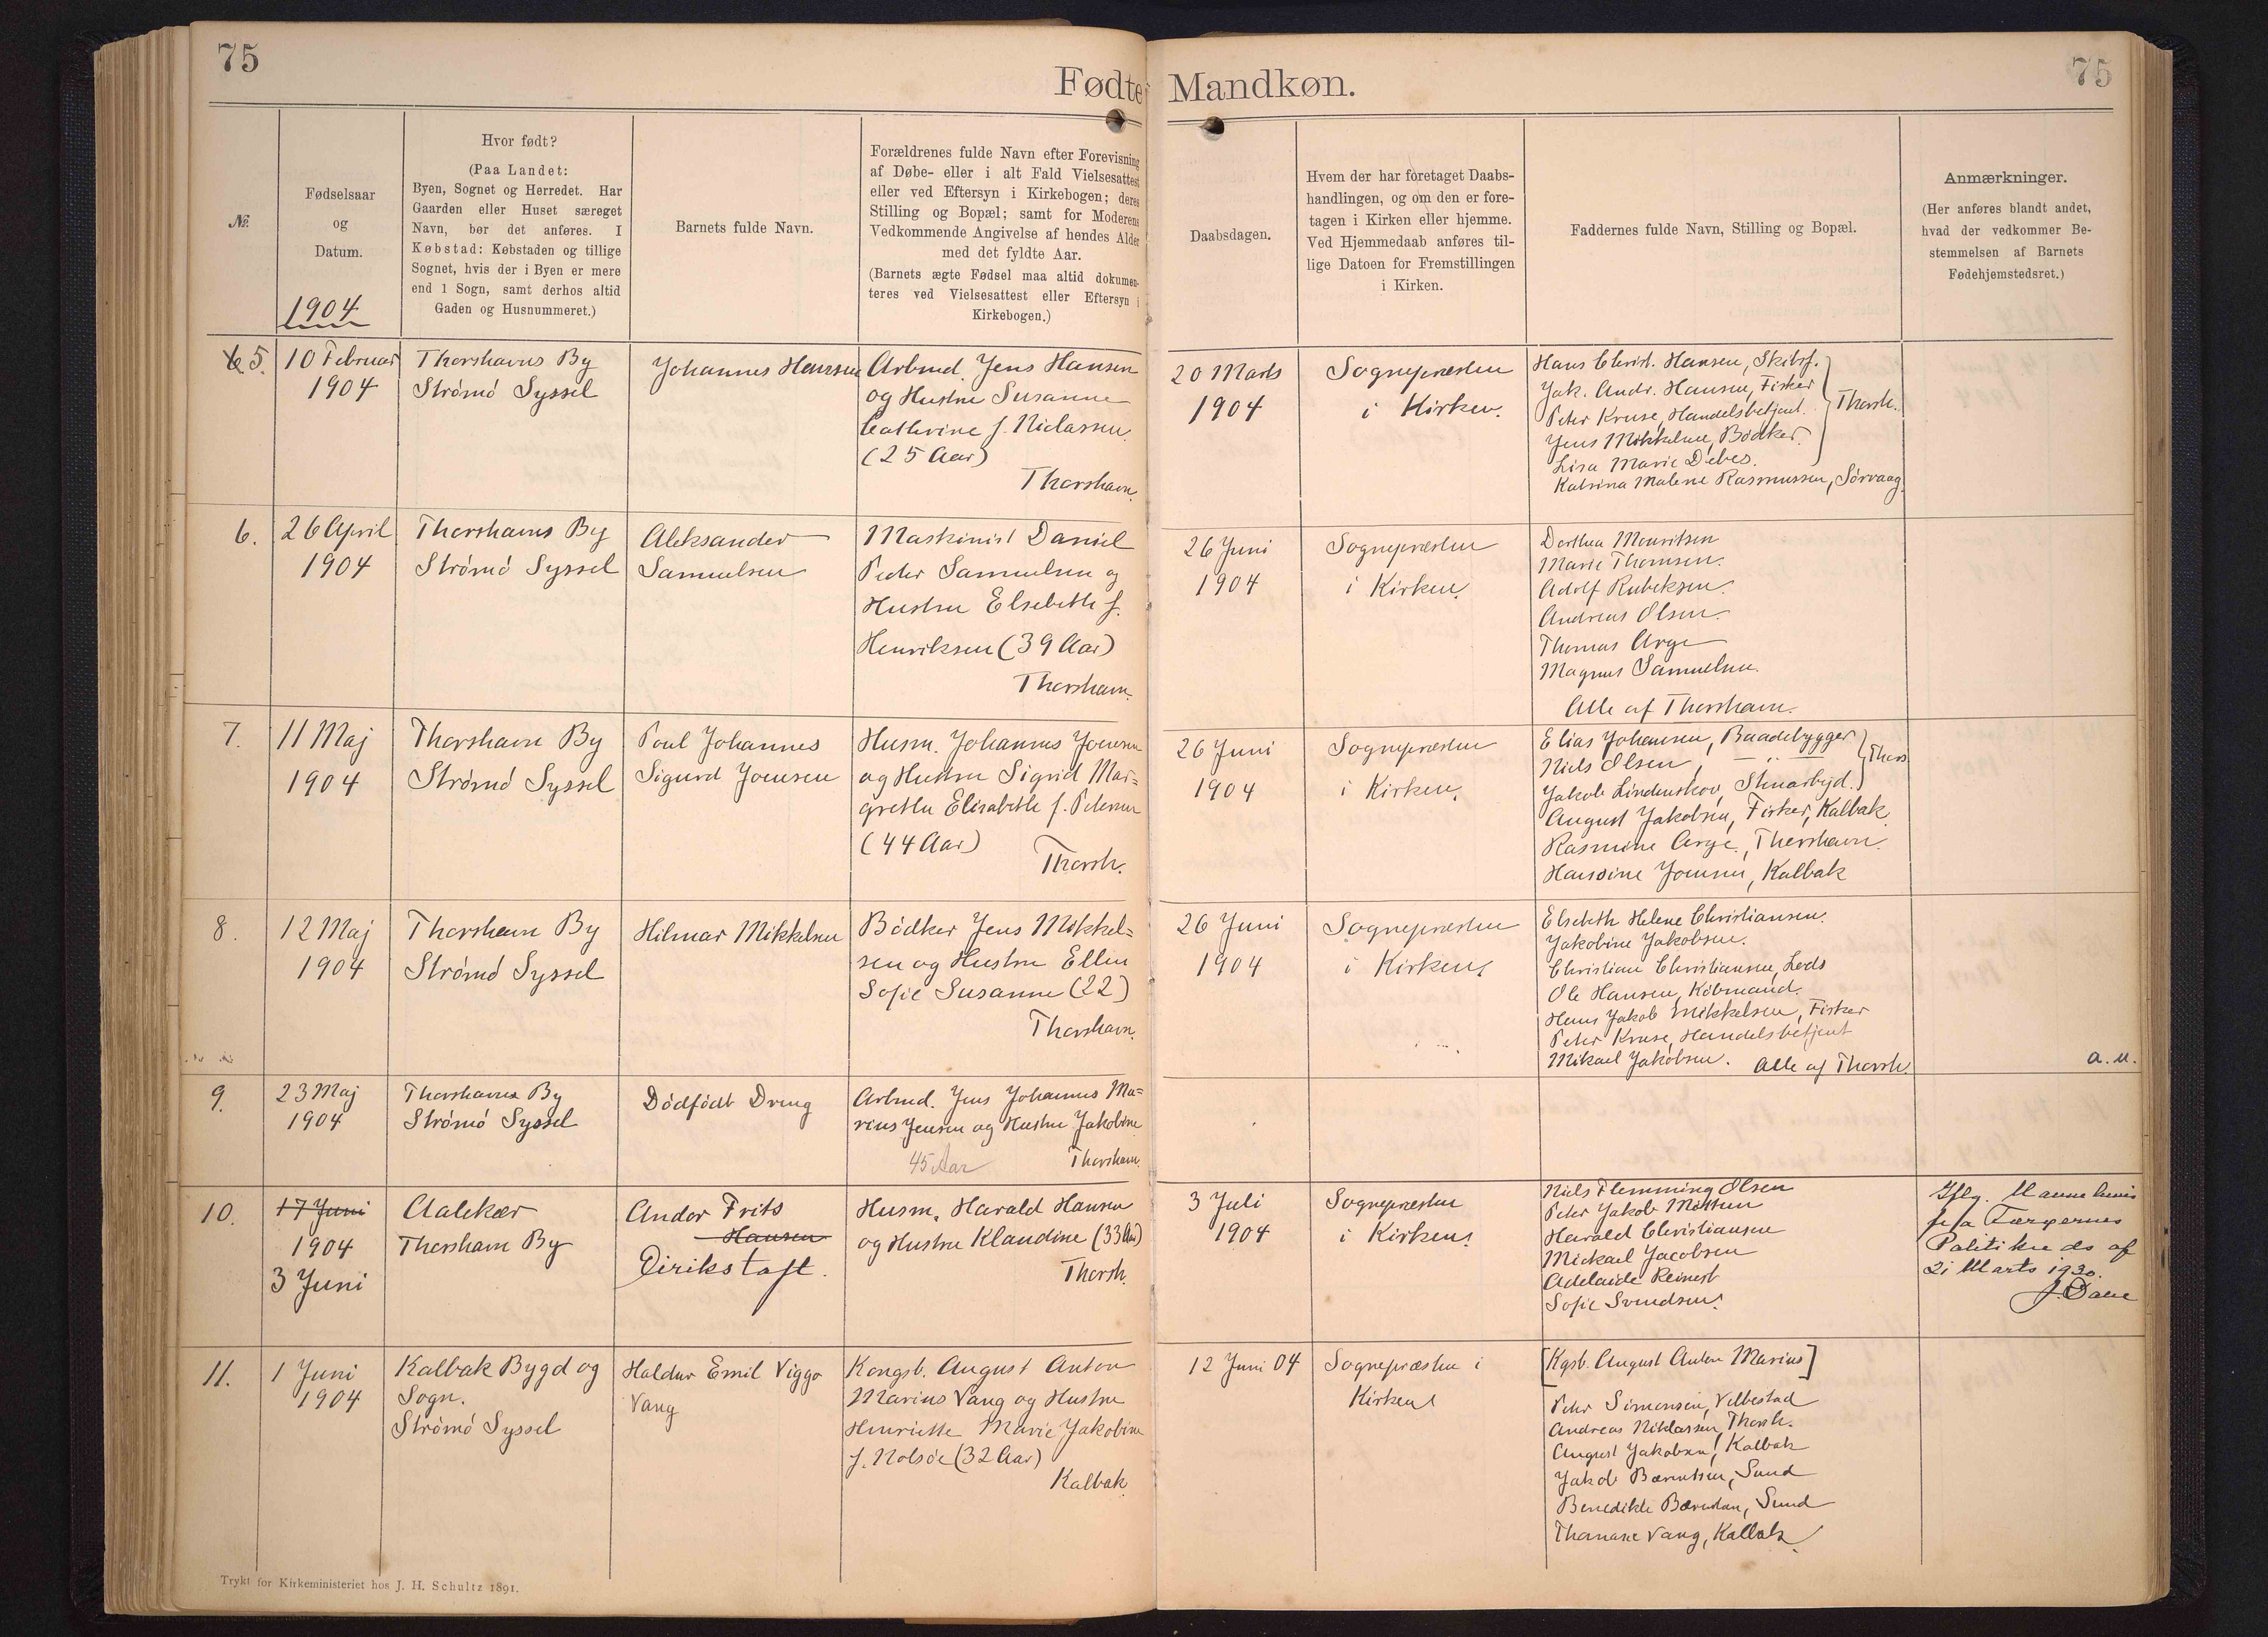 75
Fødte Mandkøn.
75
№
Fødselsaar
og
Datum.
1904
Hvor født?
(Paa Landet:
Byen, Sognet og Herredet. Har
Gaarden eller Huset særeget
Navn, bør det anføres. I
Købstad: Købstaden og tillige
Sognet, hvis der i Byen er mere
end 1 Sogn, samt derhos altid
Gaden og Husnummeret.)
Barnets fulde Navn.
Forældrenes fulde Navn efter Forevisning
af Døbe- eller i alt Fald Vielsesattest
eller ved Eftersyn i Kirkebogen; deres
Stilling og Bopæl; samt for Moderens
Vedkommende Angivelse af hendes Alder
med det fyldte Aar.
(Barnets ægte Fødsel maa altid dokumen-
teres ved Vielsesattest eller Eftersyn i
Kirkebogen.)
Daabsdagen.
Hvem der har foretaget Daabs-
handlingen, og om den er fore-
tagen i Kirken eller hjemme.
Ved Hjemmedaab anføres til-
lige Datoen for Fremstillingen
i Kirken.
Faddernes fulde Navn, Stilling og Bopæl.
Anmærkninger.
(Her anføres blandt andet,
hvad der vedkommer Be-
stemmelsen af Barnets
Fødehjemstedsret.)
6 5.
10 Februar
1904
Thorshavns By
Strømø Syssel
Johannes Hansen
Arbmd. Jens Hansen
og Hustru Susanne
Cathrine f. Niclassen
(25 Aar)
Thorshavn.
20 Marts
1904
Sognepræsten
i Kirken.
Hans Christ. Hansen, Skibsf.
Jak. Andr. Hansen, Fisker
Peter Kruse, Handelsbetjent.
Jens Mikkelsen, Bødker.
Lisa Marie Debes.
Thorsh.
Katrina Malene Rasmussen, Sørvaag.
6.
26 April
1904
Thorshavns By
Strømø Syssel
Aleksander
Samuelsen
Maskinist Daniel
Peder Samuelsen og
Hustru Elsebeth f.
Henriksen (39 Aar)
Thorshavn.
26 Juni
1904
Sognepræsten
i Kirken.
Dorthea Mouritsen
Marie Thomsen.
Adolf Rubeksen.
Andreas Olsen.
Thomas Arge
Magnus Samuelsen.
Alle af Thorshavn.
7.
11 Maj
1904
Thorshavn By
Strømø Syssel
Poul Johannes
Sigurd Joensen
Husm. Johannes Joensen
og Hustru Sigrid Mar=
gretha Elisabeth f. Petersen
(44 Aar)
Thorsh.
26 Juni
1904
Sognepræsten
i Kirken.
Elias Johansen, Baadebygger
Niels Olsen, — „ —
Jakob Lindenskov, Stenarbejd.
Thors.
August Jakobsen, Fisker, Kalbak.
Rasmine Arge, Thorshavn.
Hansine Joensen, Kalbak
8.
12 Maj
1904
Thorshavn By
Strømø Syssel
Hilmar Mikkelsen
Bødker Jens Mikkel=
sen og Hustru Ellen
Sofie Susanne (22)
Thorshavn.
26 Juni
1904
Sognepræsten
i Kirken.
Elsebeth Helene Christiansen.
Jakobine Jakobsen.
Christian Christiansen, Lods
Ole Hansen, Købmand.
Hans Jakob Mikkelsen, Fisker
Peter Kruse, Handelsbetjent
Mikael Jakobsen. Alle af Thorsh.
a. u.
9.
23 Maj
1904
Thorshavns By
Strømø Syssel
Dødfødt Dreng
Arbmd. Jens Johannes Ma=
rius Jensen og Hustru Jakobine
45 Aar
Thorshavn.
10.
17 Juni
1904
3 Juni
Aalekær
Thorshavn By
Andor Frits
Hansen
Eirikstoft.
Husm. Harald Hansen
og Hustru Klandine (33 Aar)
Thorsh.
3 Juli
1904
Sognepræsten
i Kirken.
Niels Flemming Olsen
Peter Jakob Mortensen
Harald Christiansen
Mickael Jacobsen
Adelaide Reinert
Sofie Svendsen.
Iflg. Navnebevis
fra Færøernes
Politikreds af
21 Marts 1930.
11.
1 Juni
1904
Kalbak Bygd og
Sogn.
Strømø Syssel
Haldur Emil Viggo
Vang
Kongsb. August Anton
Marius Vang og Hustru
Henriette Marie Jakobine
f. Nolsøe (32 Aar)
Kalbak.
12 Juni 04
Sognepræsten i
Kirken
[Kgsb. August Anton Marius]
Peter Simonsen, Velbestad
Andreas Niklassen, Thorsh.
August Jakobsen, Kalbak
Jakob Bærentsen, Sund
Benedikte Bærentsen, Sund
Thomasine Vang, Kalbak.
Trykt for Kirkeministeriet hos J. H. Schultz 1891.